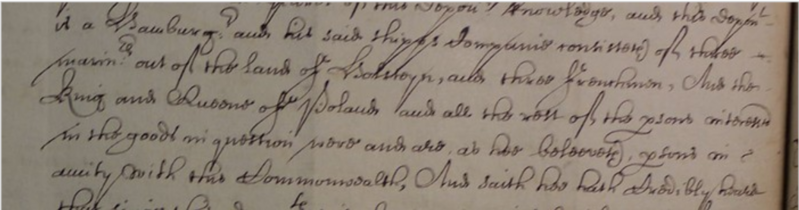 of this Deponts knowledge, and this depont
is a Hamburgr and his said shipps Companie consisteth of three
marinrs out of the land of Holsteyn, and three ffrenchmen, And the
King and Queene of Poland and all the rest of the psons interested
in the goods in question were and are, as hee beleeveth, psons in
amity with this Commonwealth, And saith hee hath Credibly heard